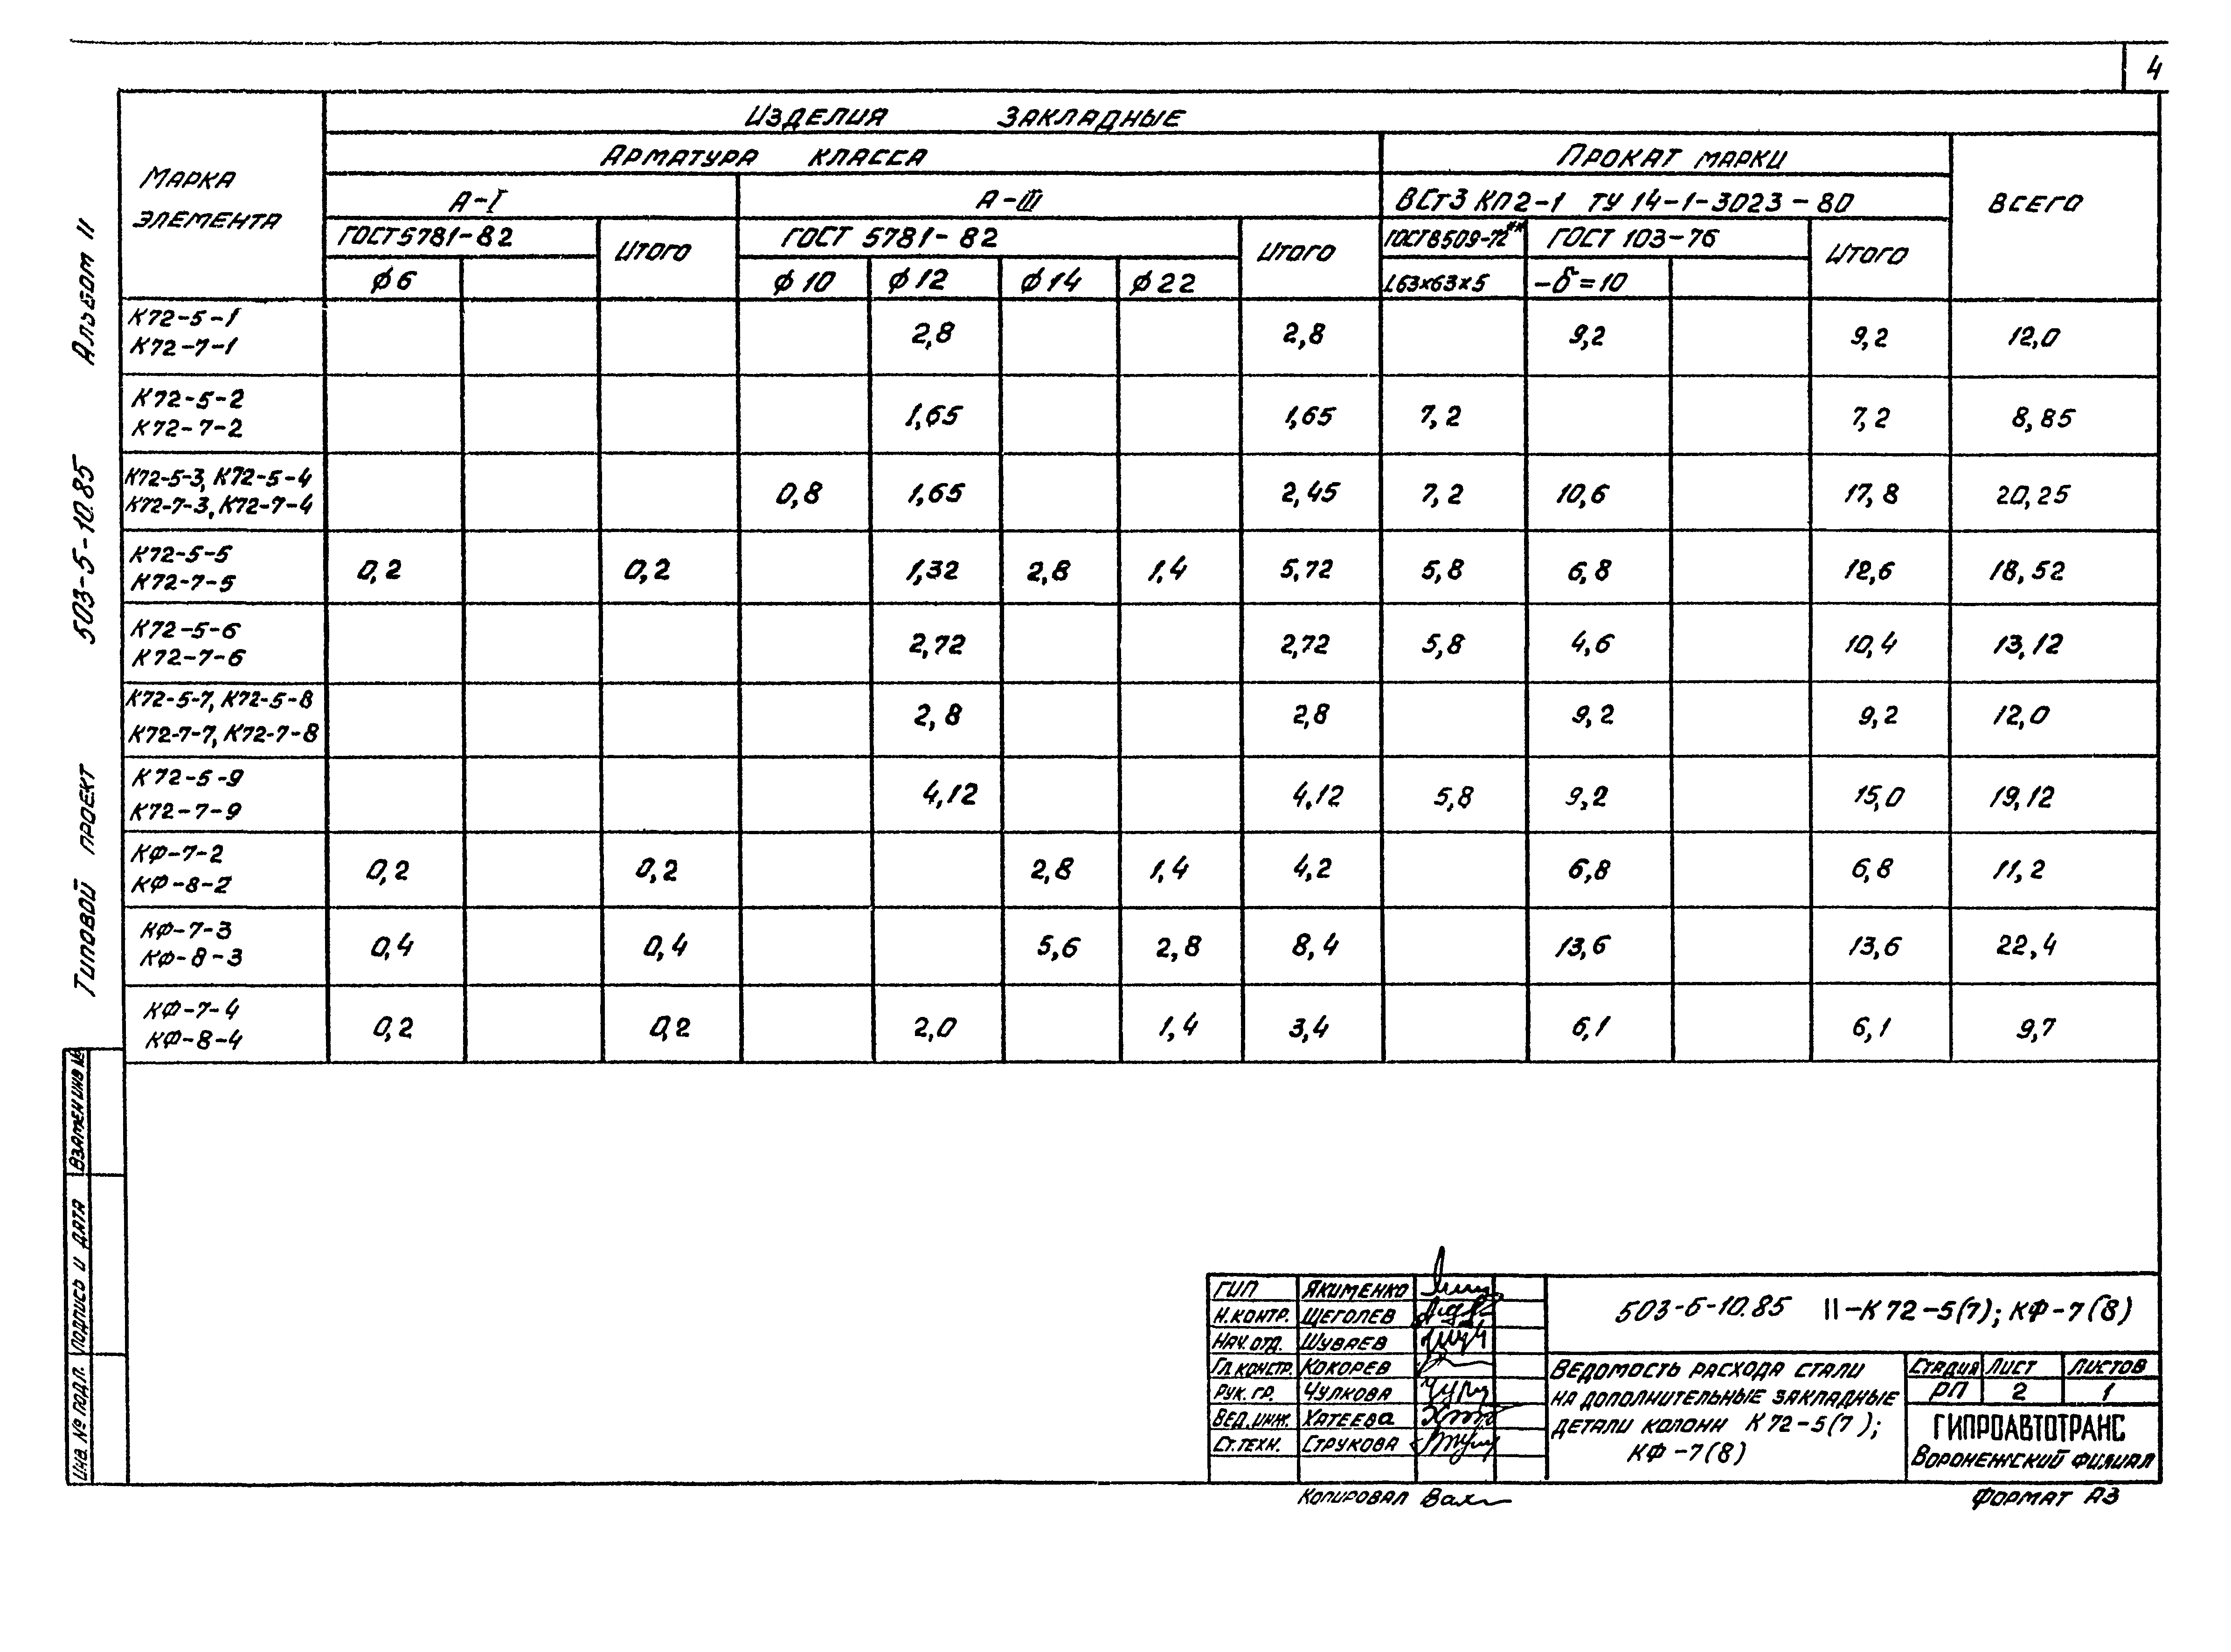 4
Изделия закладные
Марка элемента
Арматура класса
Прокат марки
Всего
А-I
А-III
ВСт3 КП2-1 ТУ 14-1-3023-80
ГОСТ 5781-82
Итого
ГОСТ 5781-82
Итого
ГОСТ 8509-72**
ГОСТ 103-76
Итого
ϕ6 ϕ10 ϕ12 ϕ14 ϕ22 L63×63×5 -δ=10
К72-5-1
К72-7-1
2,8 2,8 9,2 9,2 12,0
К72-5-2
К72-7-2
1,65 1,65 7,2 7,2 8,85
К72-5-3, К72-5-4
К72-7-3, К72-7-4
0,8 1,65 2,45 7,2 10,6 17,8 20,25
К72-5-5
К72-7-5
0,2 0,2 1,32 2,8 1,4 5,72 5,8 6,8 12,6 18,52
К72-5-6
К72-7-6
2,72 2,72 5,8 4,6 10,4 13,12
К72-5-7, К72-5-8
К72-7-7, К72-7-8
2,8 2,8 9,2 9,2 12,0
К72-5-9
К72-7-9
4,12 4,12 5,8 9,2 15,0 19,12
КФ-7-2
КФ-8-2
0,2 0,2 2,8 1,4 4,2 6,8 6,8 11,2
КФ-7-3
КФ-8-3
0,4 0,4 5,6 2,8 8,4 13,6 13,6 22,4
КФ-7-4
КФ-8-4
0,2 0,2 2,0 1,4 3,4 6,1 6,1 9,7
Типовой проект 503-5-10.85 Альбом II
Взамен инв №
Подпись и дата
Инв. № подл.
ГИП Якименко
Н.контр. Щеголев
Нач. отд. Шуваев
Гл. констр. Кокорев
Рук. гр. Чулкова
Вед. инж. Хатеева
Ст. техн. Струкова
503-5-10.85 II-К72-5(7); КФ-7(8)
Ведомость расхода стали
на дополнительные закладные
детали колонн К72-5(7);
КФ-7(8)
Стадия Лист Листов
РП 2 1
ГИПРОАВТОТРАНС
Воронежский филиал
Копировал
Формат А3